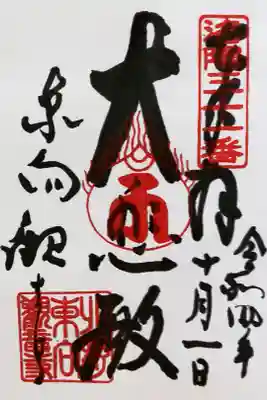 洛陽三十一番
奉拝
令和四年
十月一日
大悲殿
東向観音寺